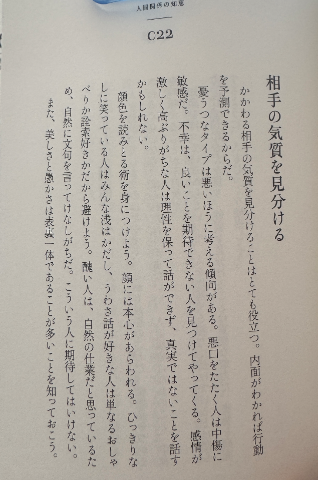 人間関係の知恵
C22
相手の気質を見分ける
かかわる相手の気質を見分けることはとても役立つ。内面がわかれば行動
を予測できるからだ。
憂うつなタイプは悪いほうに考える傾向がある。悪口をたたく人は中傷に
敏感だ。不幸は、良いことを期待できない人を見つけてやってくる。感情が
激しく高ぶりがちな人は理性を保って話ができず、真実ではないことを話す
かもしれない。
顔色を読みとる術を身につけよう。顔には本心があらわれる。ひっきりな
しに笑っている人はみんな浅はかだし、うわさ話が好きな人は単なるおしゃ
べりか詮索好きかだから避けよう。醜い人は、自然の仕業だと思っているた
め、自然に文句を言ってけなしがちだ。こういう人に期待してはいけない。
また、美しさと愚かさは表裏一体であることが多いことを知っておこう。